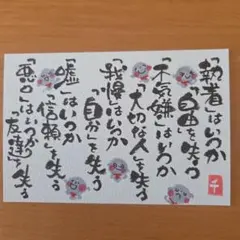 「執着」はいつか
「自由」を失う
「不気嫌」はいつか
「大切な人」を失う
「我慢」はいつか
「自分」を失う
「嘘」はいつか
「信頼」を失う
「悪口」はいつか
「友達」を失う
千